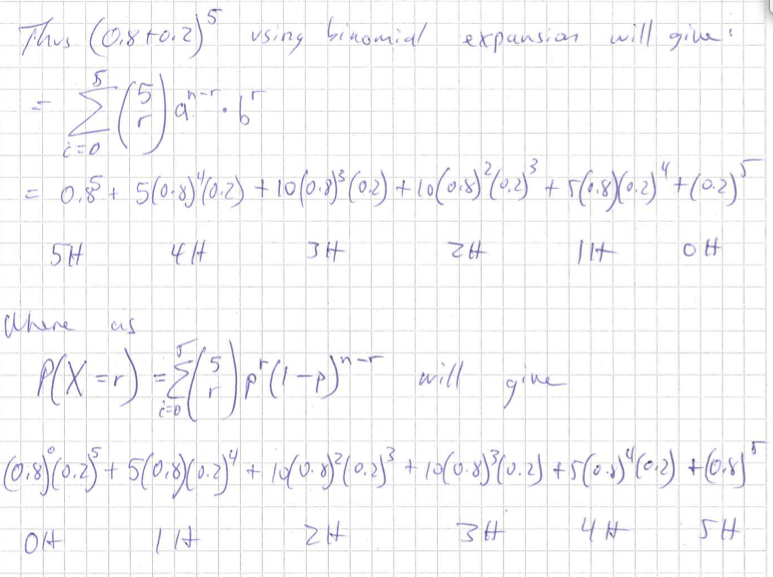 Thus (0.8+0.2)^5 using binomial expansion will give:
= \sum_{i=0}^{5} \binom{5}{r} a^{n-r} \cdot b^r
= 0.8^5 + 5(0.8)^4(0.2) + 10(0.8)^3(0.2) + 10(0.8)^2(0.2)^3 + 5(0.8)(0.2)^4 + (0.2)^5
5H 4H 3H 2H 1H 0H
Where as
P(X=r) = \sum_{i=0}^{5} \binom{5}{r} p^r (1-p)^{n-r} will give
(0.8)^0(0.2)^5 + 5(0.8)(0.2)^4 + 10(0.8)^2(0.2)^3 + 10(0.8)^3(0.2) + 5(0.8)^4(0.2) + (0.8)^5
0H 1H 2H 3H 4H 5H